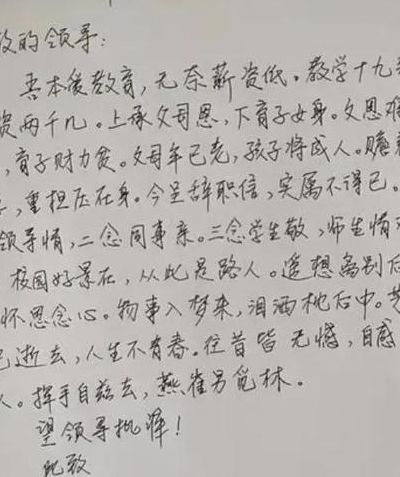 的领导:
吾本爱教育,无奈薪资低。教学十九
资两千几。上承父母恩,下育子女身。父恩难
,育子财力贫。父母年已老,孩子将成人。赡
,重担压在身。今呈辞职信,实属不得已。
领导情,二念同事亲。三念学生敬,师生情
校园好景在,从此是路人。遥想离别后
怀思念心。物事入梦来,泪洒枕巾中。
已逝去,人生不有春。往昔皆无憾,自感
人。挥手自兹去,燕雀另觅林。
望领导批准!
此致